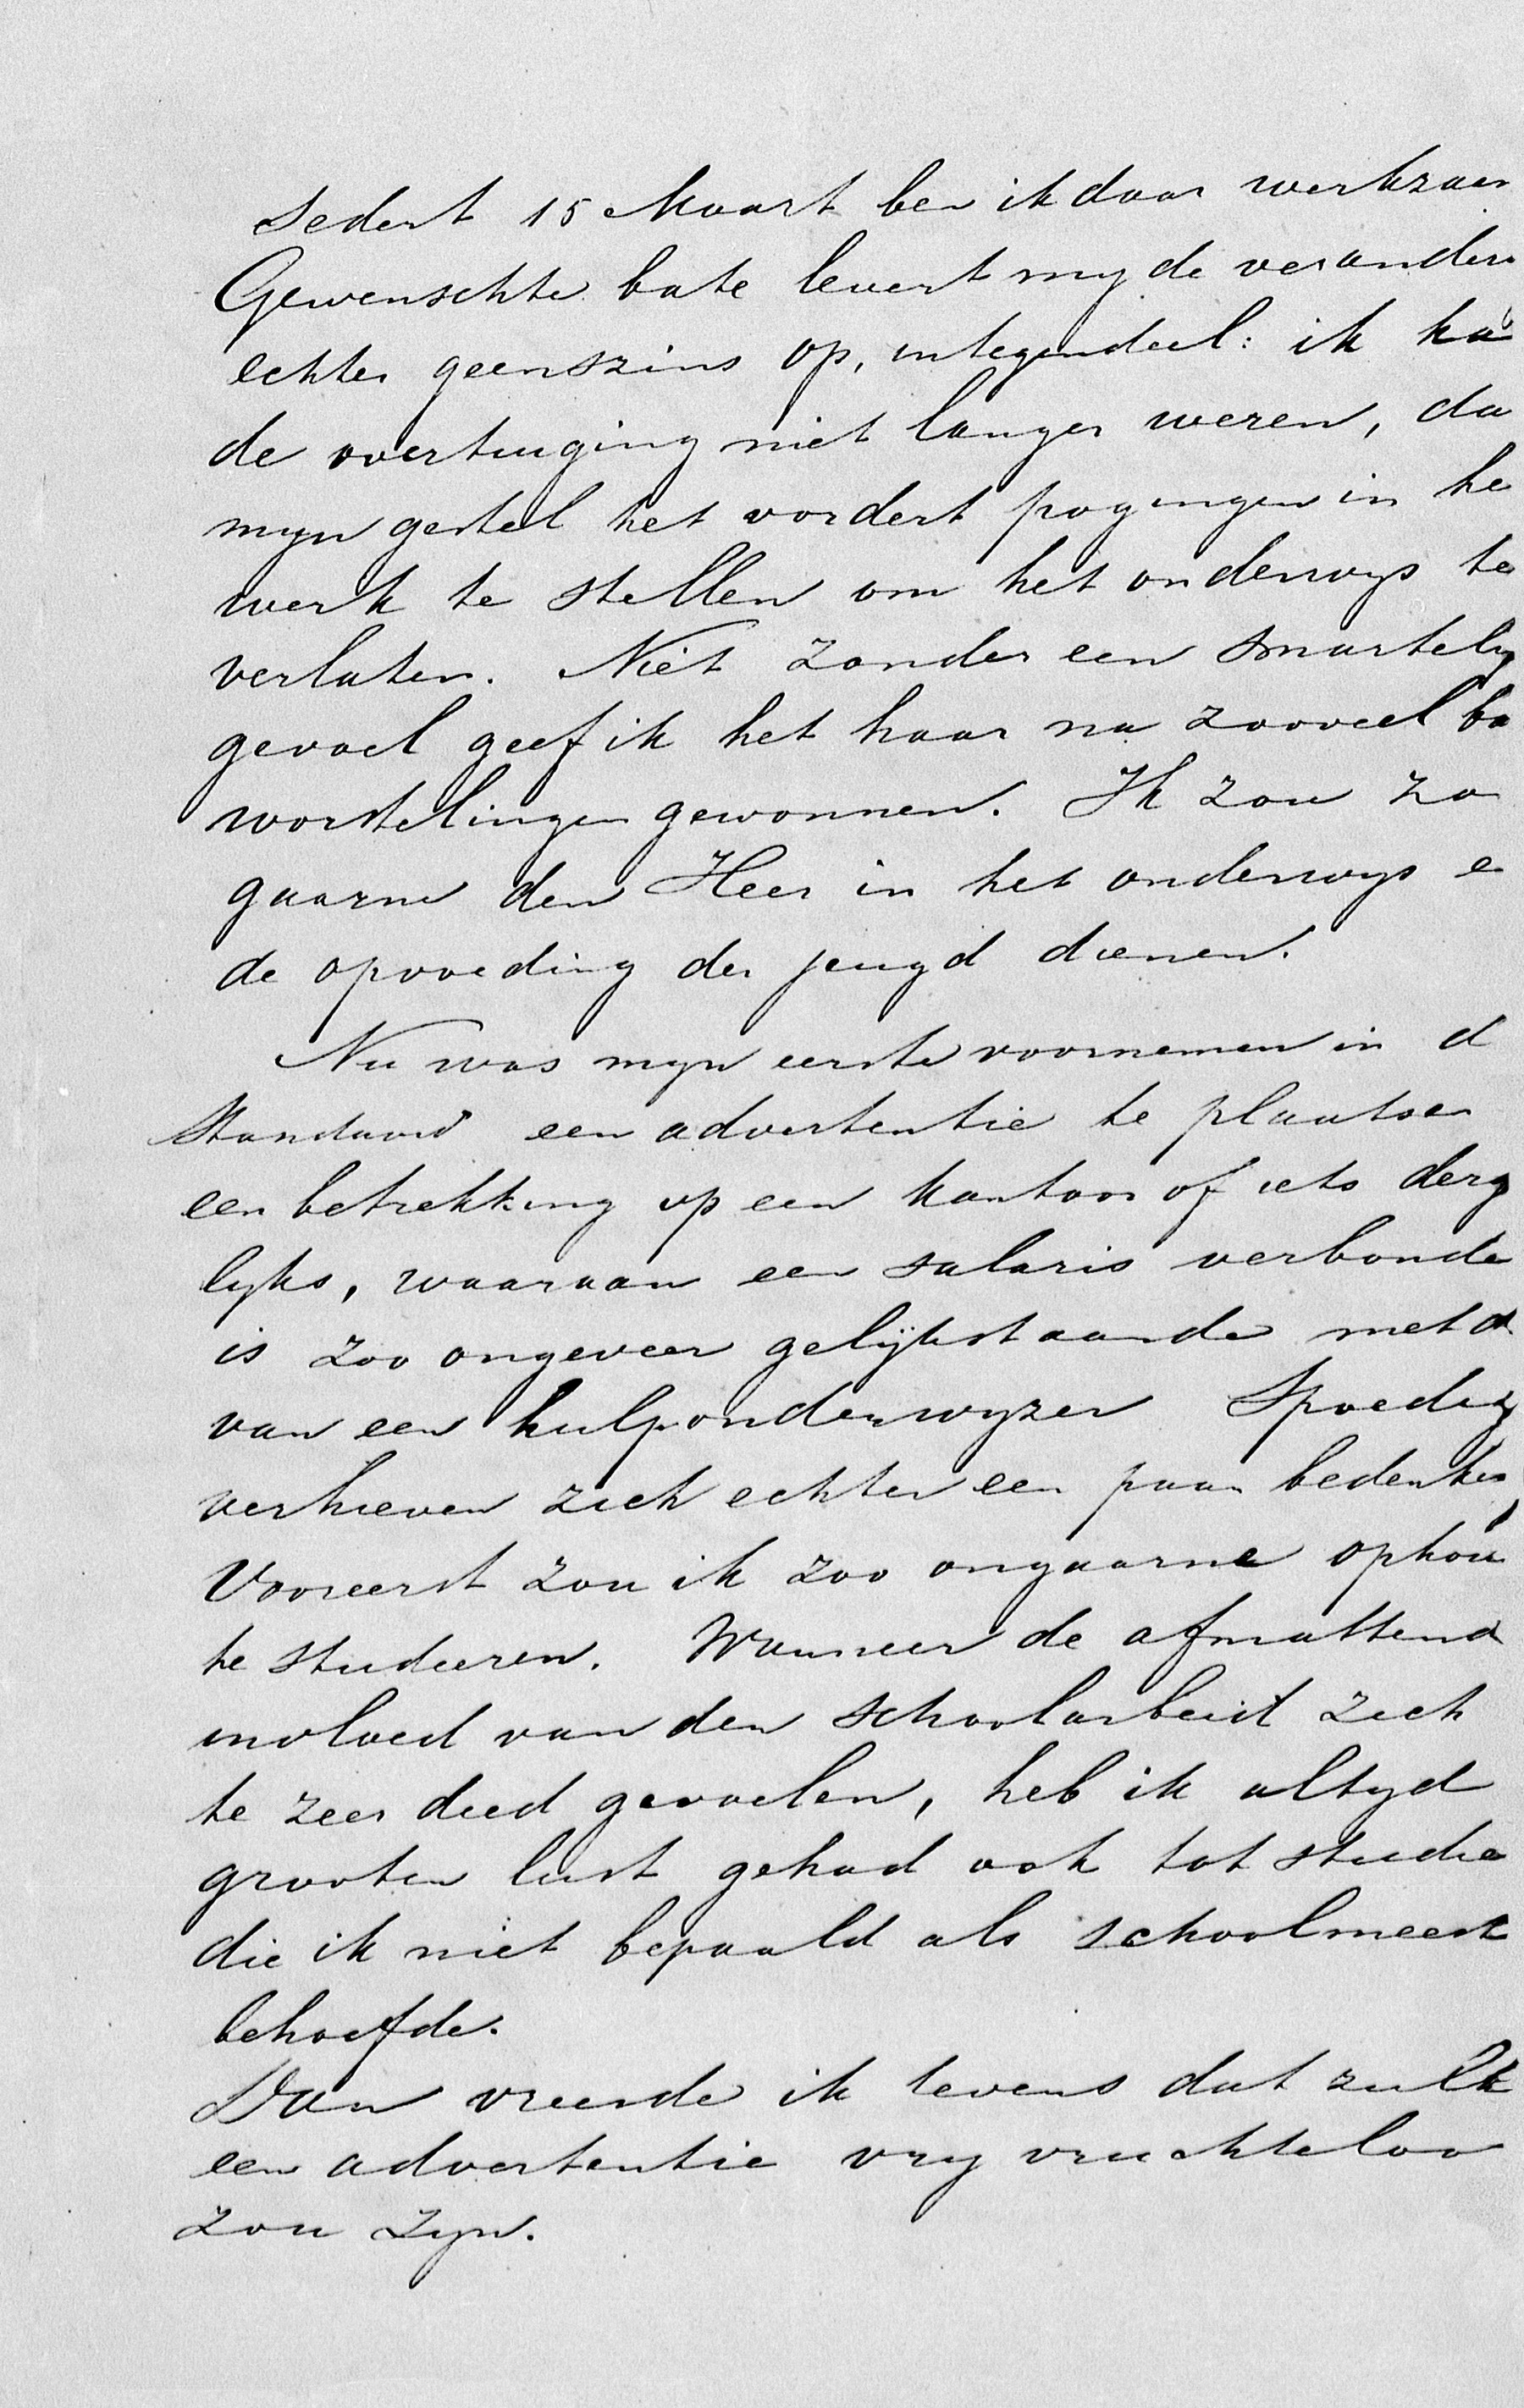 Sedert 15 Maart ben ik daar werkzaam
Gewenschte bate levert my de verander
echter geenszins op, integendeel: ik ka
de overtuiging niet langer weren, da
myn gestel het vordert pogingen in he
werk te stellen om het onderwys te
verlaten. Niet zonder een smartely
gevoel geef ik het haar na zooveel ba
worstelingen gewonnen. Ik zou zo
gaarne den Heer in het onderwys e
de opvoeding der jeugd dienen.
Nu was myn eerste voornemen in d
Standaard een advertentie te plaatsen
een betrekking op een kantoor of iets derg
lyks, waaraan een salaris verbonde
is zoo ongeveer gelijkstaande met d
van een hulponderwyzer Spoedig
verhieven zich echter een paar bedenki
Vooreerst zou ik zoo ongaarne ophou
te studeeren. Wanneer de afmattend
invloed van den schoolarbeid zich
te zeer deed gevoelen, heb ik altyd
grooten lust gehad ook tot studie
die ik niet bepaald als schoolmeest
behoefde.
Dan vreesde ik tevens dat zulk
een advertentie vry vruchteloo
zou zyn.